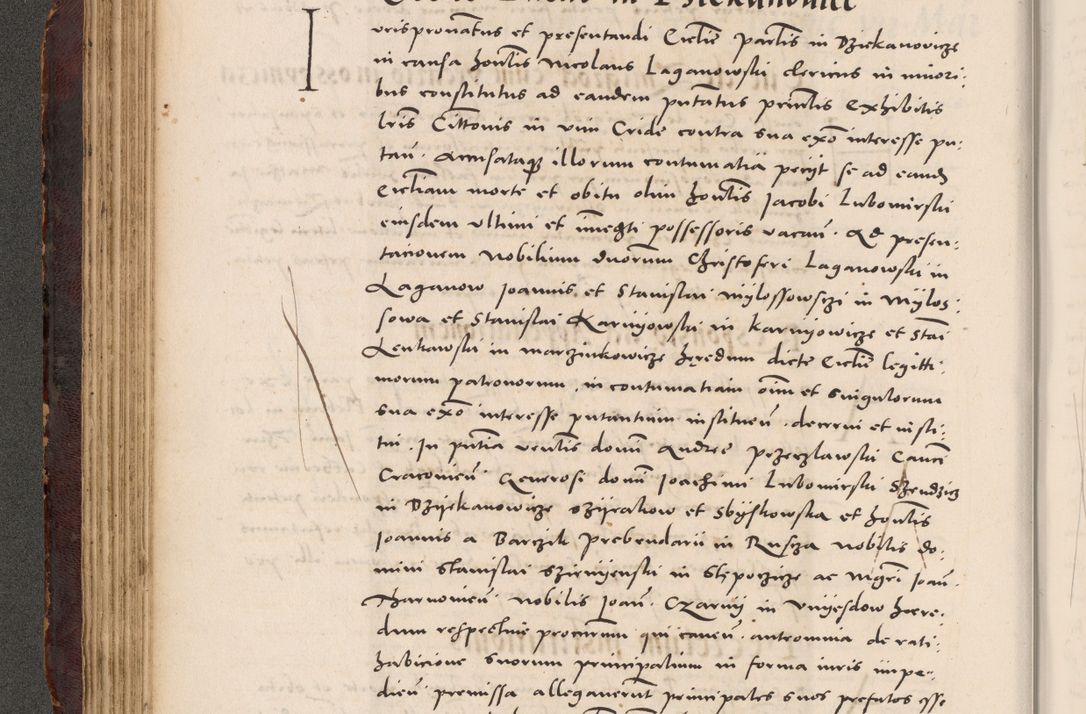 in Dziekanowicze
Iurispronatus et presentandi Ecclie parlis in Dziekanowicze
in causa honlis Nicolaus Laganowski clericus in minori-
bus constitutus ad eandem putatus prinlis exhibitis
lris Cittonis in vim Cride contra sua exo interesse pu-
tan. Accusataque illorum contumatia peciit se ad eand
Eccliam morte et obitu olim honlis Jacobi Lubomirski
eiusdem ultimi et immegti possessoris vacan. Ad presen-
tacionem nobilium duorum Christoferi Laganowski in
Laganow Joannis et Stanislai Mylossowski in Mylos-
sowa et Stanislai Karnyowski in Karnyowicze et Stai
Lenkawski in Marczinkowicze heredum dicte Ecclie legitti-
morum patronorum, in contumatiam oim et singulorum
sua exo interesse putantium instituen. decrevi et insti-
tui. In pntia venlis domi Andree Przeczlawski Canci
Cracovien Generosi domi Joachimi Lubomirski
in Dzyekanowicze ozyrakow et Sbyskowska et honlis
Joannis a Barczik Prebendarii in Rusza nobilis do-
mini Stanislai in Slposzicze ac Mgri Joan.
Tharnovien nobilis Joan. Czarny in Vnyesdow here-
dum respective procurum qui caven. antromnia de rati-
habicione suorum principalium in forma iuris impe-
dien premissa allegaverunt principales suos prefatos esse